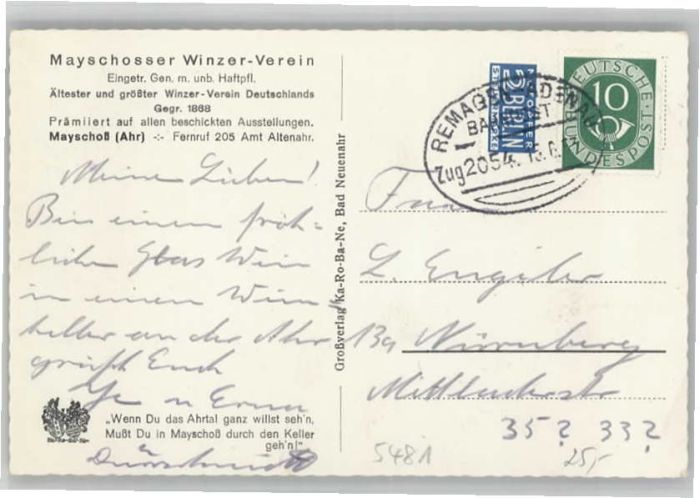 Mayschosser Winzer-Verein
Eingetr. Gen. m. unb. Haftpfl.
Ältester und größter Winzer-Verein Deutschlands
Gegr. 1868
Prämiiert auf allen beschickten Ausstellungen.
Mayschoß (Ahr) -:- Fernruf 205 Amt Altenahr.
Meine Lieben!
Bei einem fröh=
lichen Glas Wein
in einem Wein
keller an der Ahr
grüßt Euch
u Erna
„Wenn Du das Ahrtal ganz willst seh'n,
Mußt Du in Mayschoß durch den Keller
geh'n!"
Großverlag Ka-Ro-Ba-Ne, Bad Neuenahr
NOTOPFER
2 BERLIN
STEUERMARKE
DEUTSCHE
10
BUNDESPOST
REMAGEN-ADENAU
BAHNPOST
Zug 2054
L. Engeler
Nürnberg
35? 33?
5481
25,-